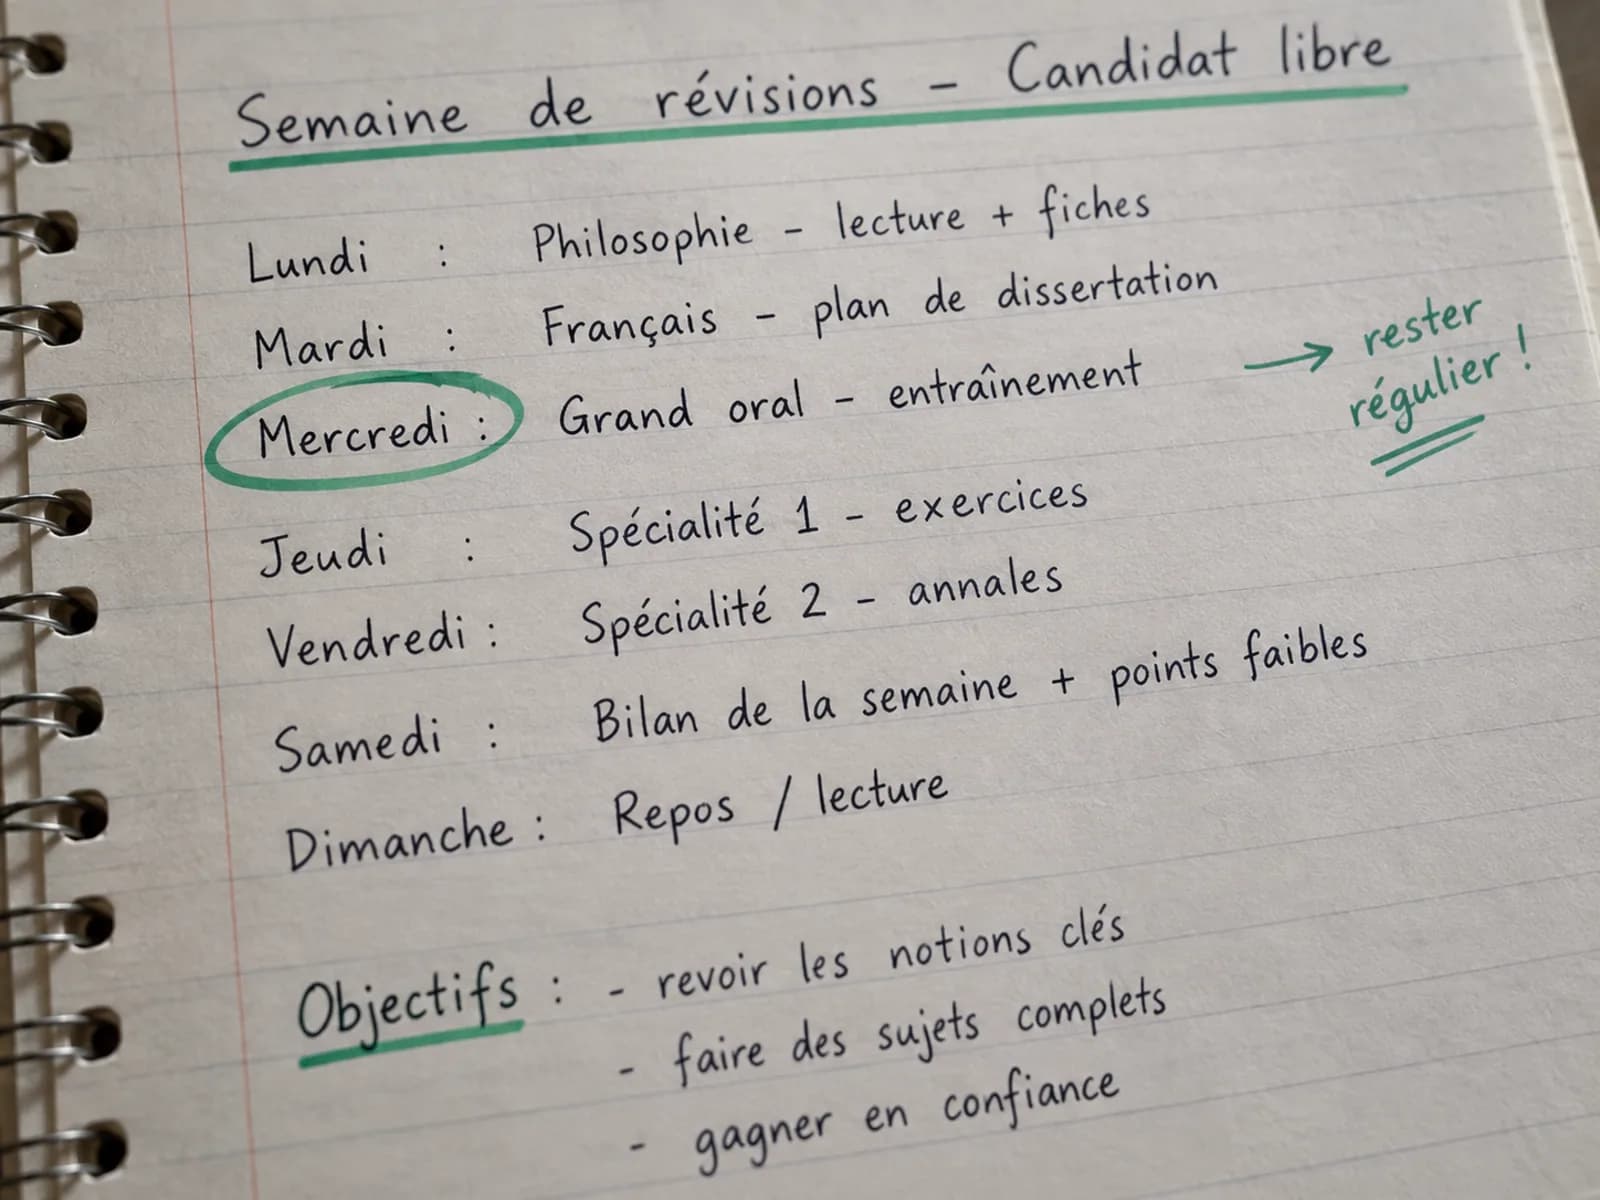 Semaine de révisions – Candidat libre
Lundi : Philosophie – lecture + fiches
Mardi : Français – plan de dissertation
Mercredi : Grand oral – entraînement
→ rester
régulier !
Jeudi : Spécialité 1 – exercices
Vendredi : Spécialité 2 – annales
Samedi : Bilan de la semaine + points faibles
Dimanche : Repos / lecture
Objectifs : - revoir les notions clés
- faire des sujets complets
- gagner en confiance